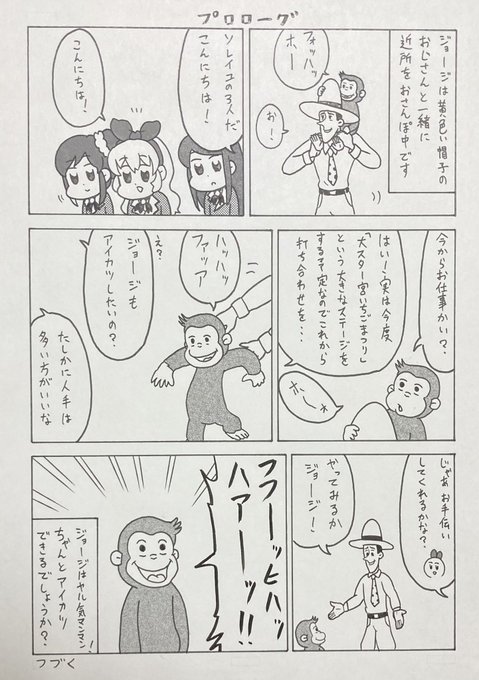 プロローグ
ジョージは黄色い帽子の
おじさんと一緒に
近所をおさんぽ中です
フォッハッ
ホー
お！
ソレイユの3人だ
こんにちは！
こんにちは！
今からお仕事かい？
はい！実は今度
「大スター宮いちごまつり」
という大きなステージを
する予定なのでこれから
打ち合わせを‥
ホー
ハッハッ
ファッア
え？
ジョージも
アイカツしたいの？
たしかに人手は
多い方がいいな
じゃあお手伝い
してくれるかな？
やってみるか
ジョージ！
フフーッヒハッ
ハアーッ!!
ジョージはヤル気マンマン！
ちゃんとアイカツ
できるでしょうか？
つづく